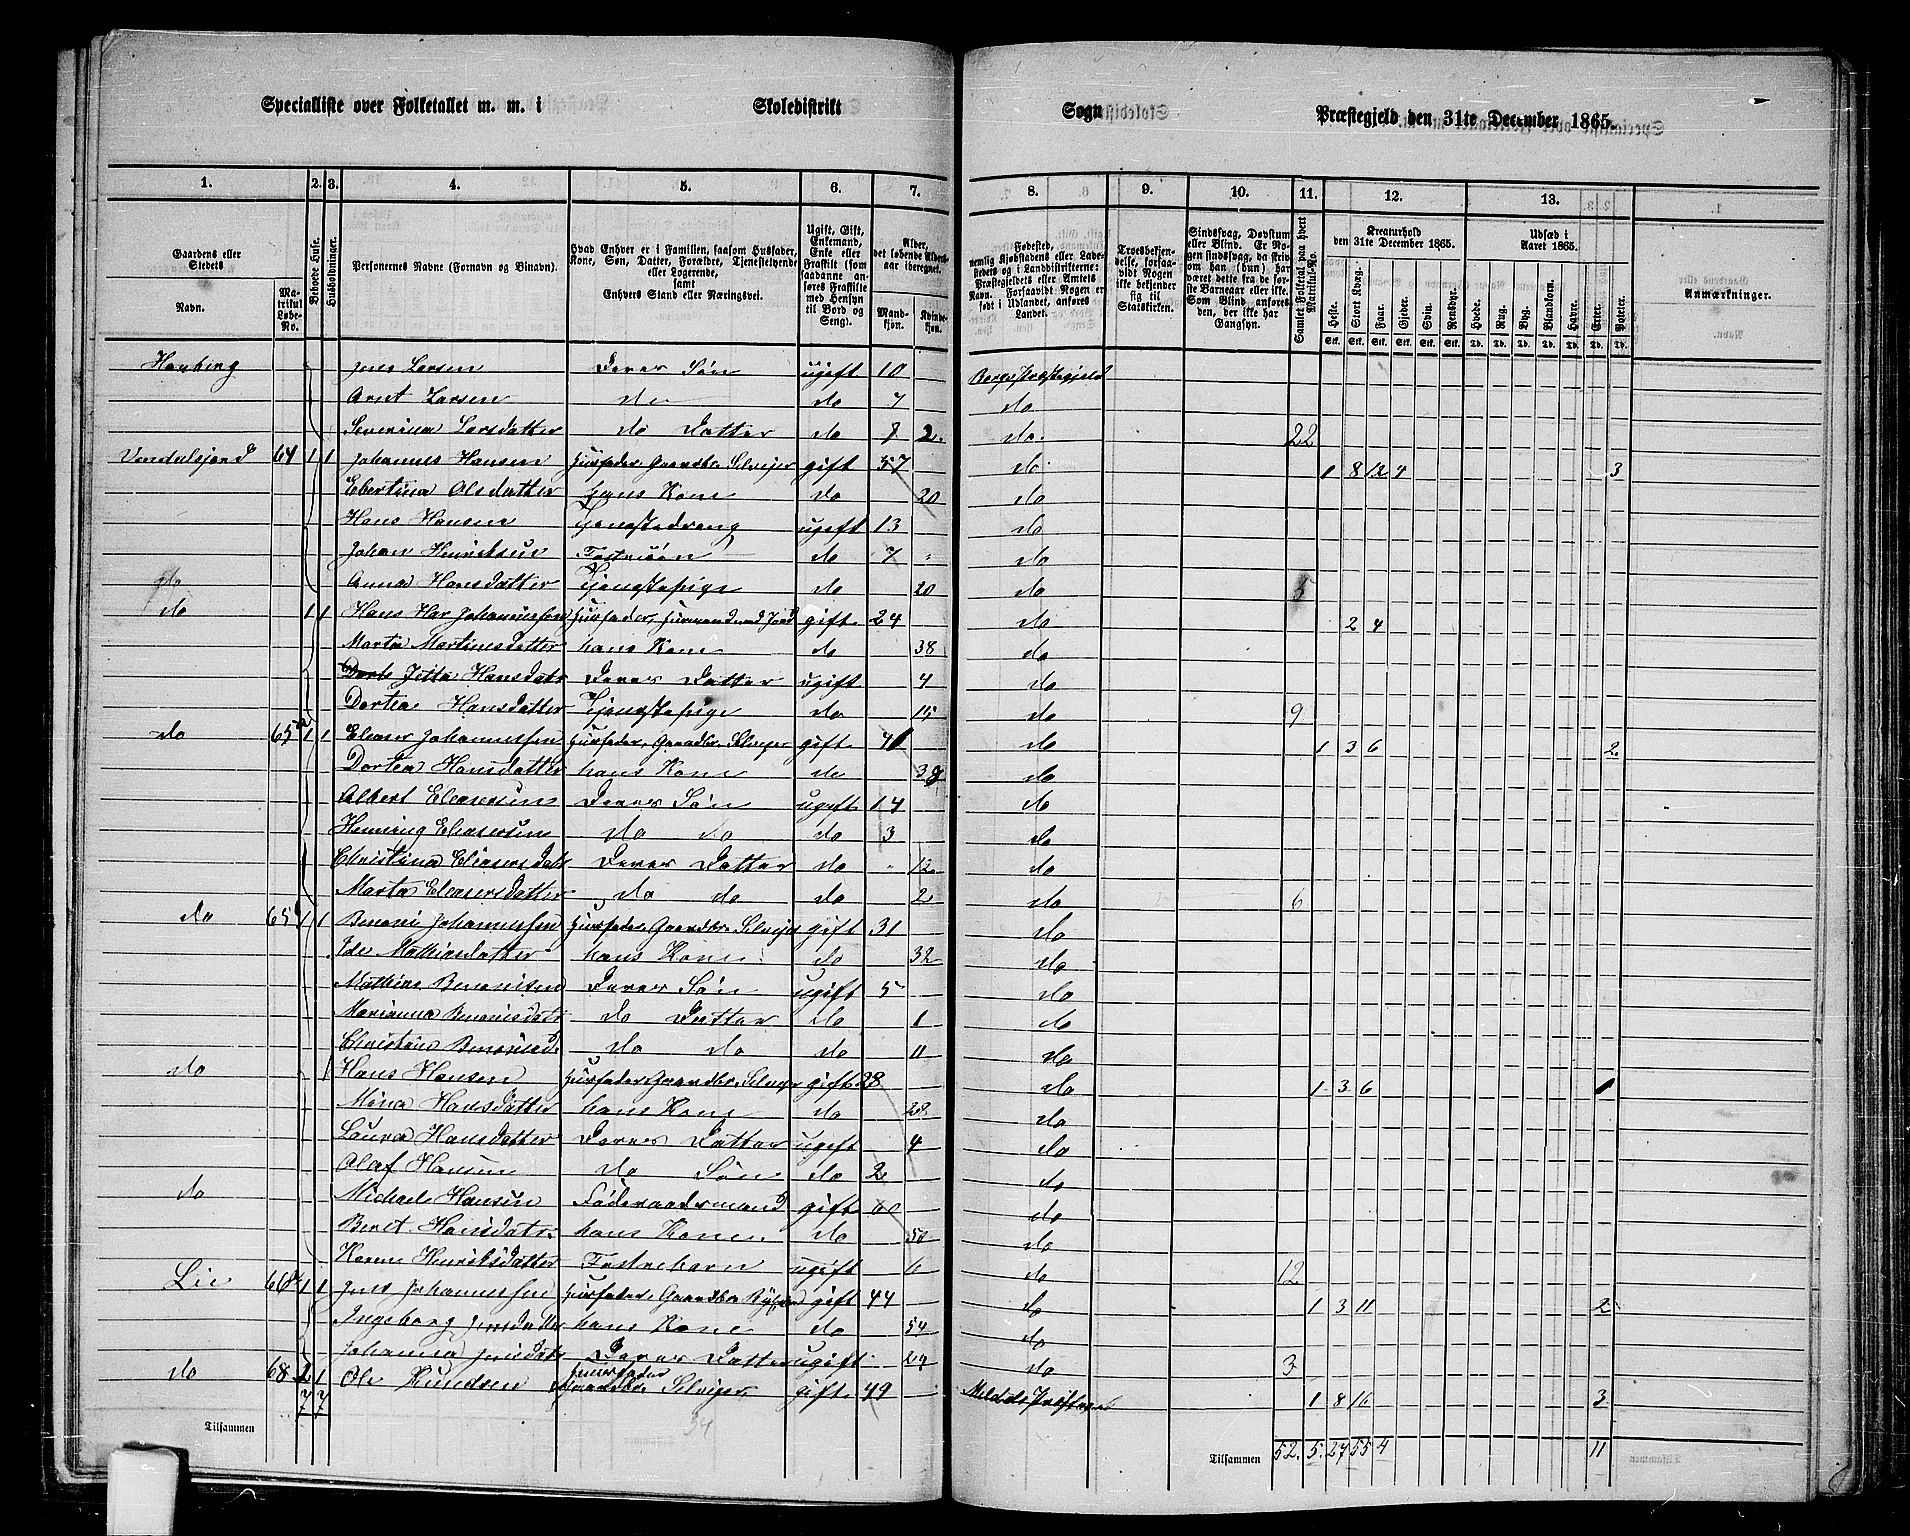 Specialliste over Folketallet m. m. i Skoledistrikt Sogn Præstegjeld den 31te December 1865.
1. 2. 3. 4. 5. 6. 7. 8. 9. 10. 11. 12. 13.
Gaardens eller Stedets Navn. Matrikul Løbe-No. Beboede Huse. Husholdninger. Personernes Navne (Fornavn og Binavn). Hvad Enhver er i Familien, saasom Husfader, Kone, Søn, Datter, Forældre, Tjenestetyende eller Logerende, samt Enhvers Stand eller Næringsvei. Ugift, Gift, Enkemand, Enke eller Fraskilt (som saadanne anføres Fraskilte med Hensyn til Bord og Seng). Alder, det løbende Aldersaar iberegnet. Mandkjøn. Kvindekjøn.
Fødested, nemlig Kjøbstadens eller Ladestedets og i Landdistrikterne: Præstegjeldets eller Amtets Navn. Forsaavidt Nogen er født i Udlandet, anføres Landet. Troesbekjendelse, forsaavidt Nogen ikke bekjender sig til Statskirken. Sindssvag, Døvstum eller Blind. Er Nogen sindssvag, da skrives om han (hun) har været dette fra de første Barneaar eller ikke. Som Blind anføres den, der ikke har Gangsyn. Samlet Folketal paa hvert Matrikul-No. Kreaturhold den 31te December 1865. Udsæd i Aaret 1865. Anmærkninger.
Heste. Stort Kvæg. Faar. Gjeder. Svin. Rensdyr. Hvede. Rug. Byg. Blandkorn. Havre. Erter. Poteter.
Jens Larsen Deres Søn ugift 10
Arnt Larsen do do 7 do
Severina Larsdatter do Datter do 2 do 22
64 1 1 Johannes Hansen Husfader Gaardbr. Selveier gift 57 do 1 8 12 4 3
Ebertina Olsdatter Hans Kone do 20 do
Hans Hansen Tjenestedreng ugift 13 do
Johan Henriksen Fostersøn do 7 do
do Anna Hansdatter Tjenestepige do 20 do 5
do 1 1 Hans Johannessen Husfader, Husmand med Jord gift 24 do 2 4
Marta Martinusdatter hans Kone do 38 do
Jetta Hansdatr Deres Datter ugift 4 do
Dortea Hansdatter Tjenestepige do 15 do 9
do 65 1 1 Eleaser Johannessen Husfader, Gaardbr. Selveier gift do 1 3 6 2
Dortea Hansdatter hans Kone do do
Albert Eleasersen Deres Søn ugift 14 do
Henning Eleasersen do do do 3 do
Christina Eleasersdatr Deres Datter do 12 do
Marta Eleasersdatter do do do 2 do 6
do 65 1 1 Benoni Johannessen Husfader Gaardbr. Selveier gift 31 do
Mathiasdatter hans Kone do 32 do
Mathias Benonisen Deres Søn ugift 5 do
Marianna Benonisdatr do Datter do 1 do
do do do 11 do
do Hans Hansen Husfader Gaardbr. Selveier gift 28 do 1 3 6 1
Hansdatter hans Kone do 28 do
Laura Hansdatter Deres Datter ugift 4 do
Olaf Hansen do Søn do 2 do
do Michael Hansen Føderaadsmand gift 60 do
Berit Hansdatr. hans Kone do 50 do
Karen Henriksdatter Fosterbarn ugift 6 do 12
Lie 1 1 Jens Johannessen Husfader Gaardbr. gift 44 do 1 3 11 2
Ingeborg Jensdatter hans Kone do 54 do
Johanna Jensdatr Deres Datter ugift 24 do 3
do 68 2 1 Ole Knudsen Husfader Gaardbr. Selveier gift 49 1 8 16 3
7 7
Tilsammen 34 Tilsammen 52 5 27 55 4 11